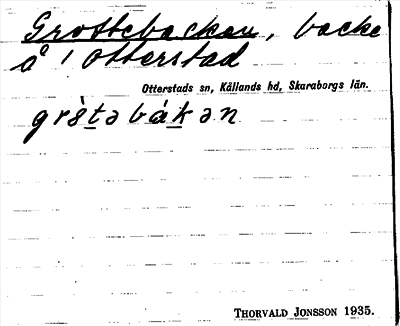 Grottebacken, backe
å 1 Otterstad
Otterstads sn, Kållands hd, Skaraborgs län.
THORVALD JONSSON 1935.